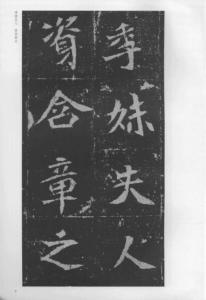 季妹夫人
資含章之